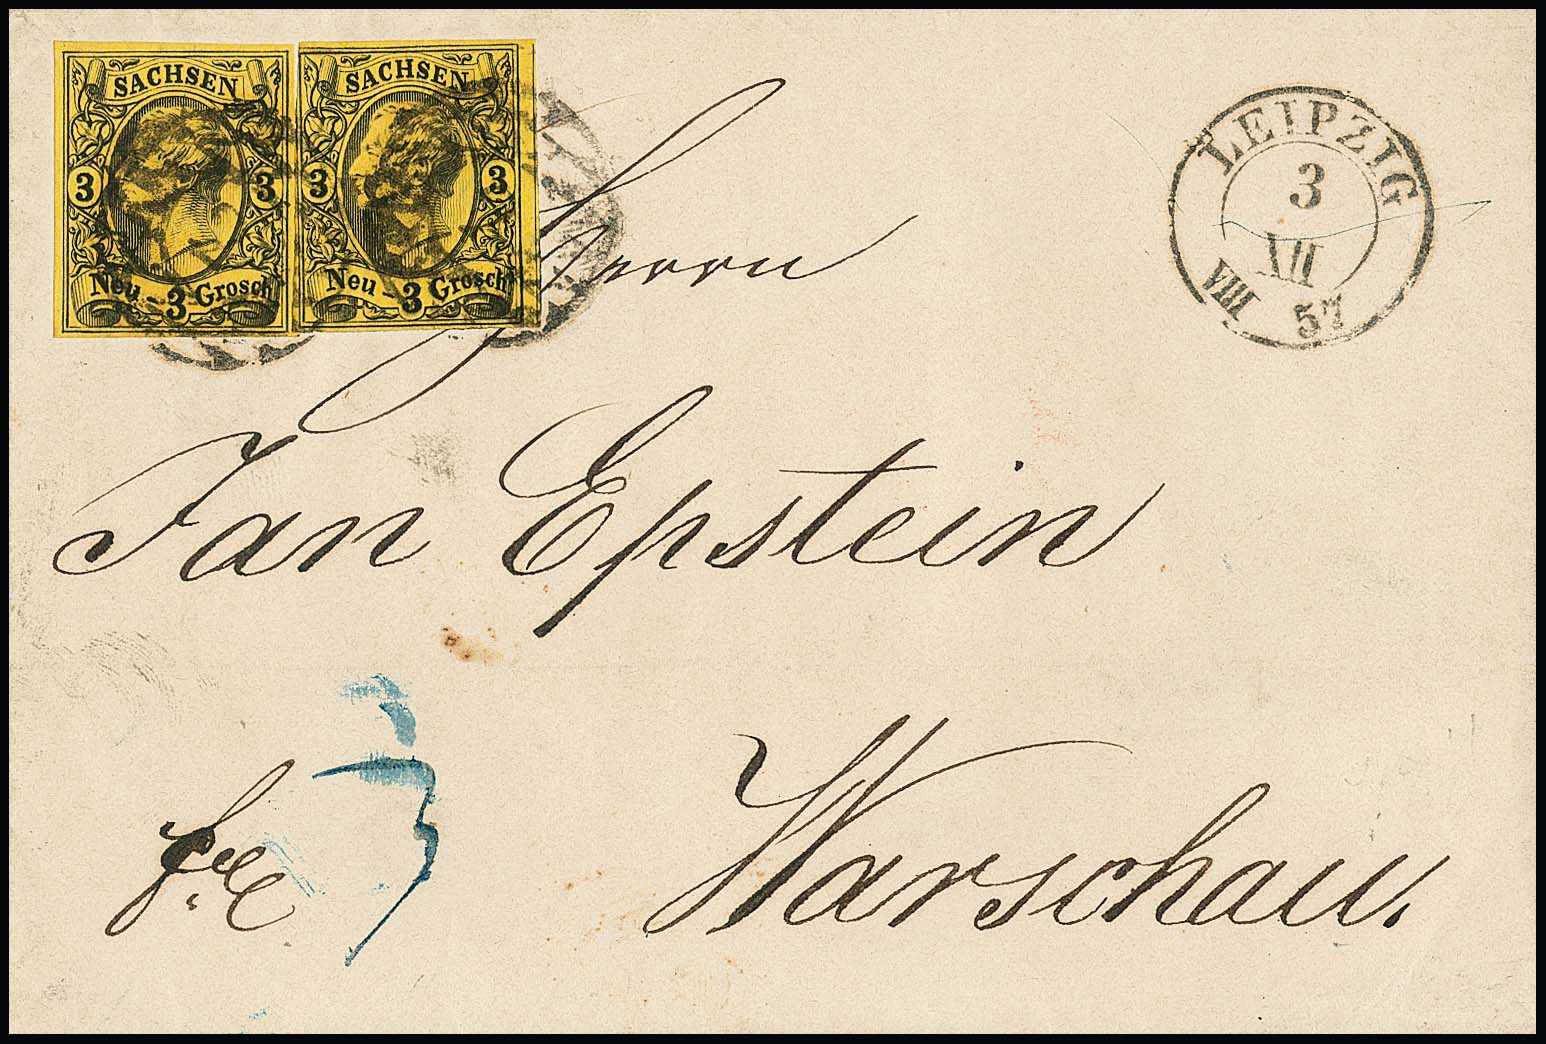 SACHSEN
3 3
Neu - 3 Grosch
SACHSEN
3 3
Neu - 3 Grosch
LEIPZIG
3
XII
VIII 57
Herrn
Jan Epstein
Warschau.
3